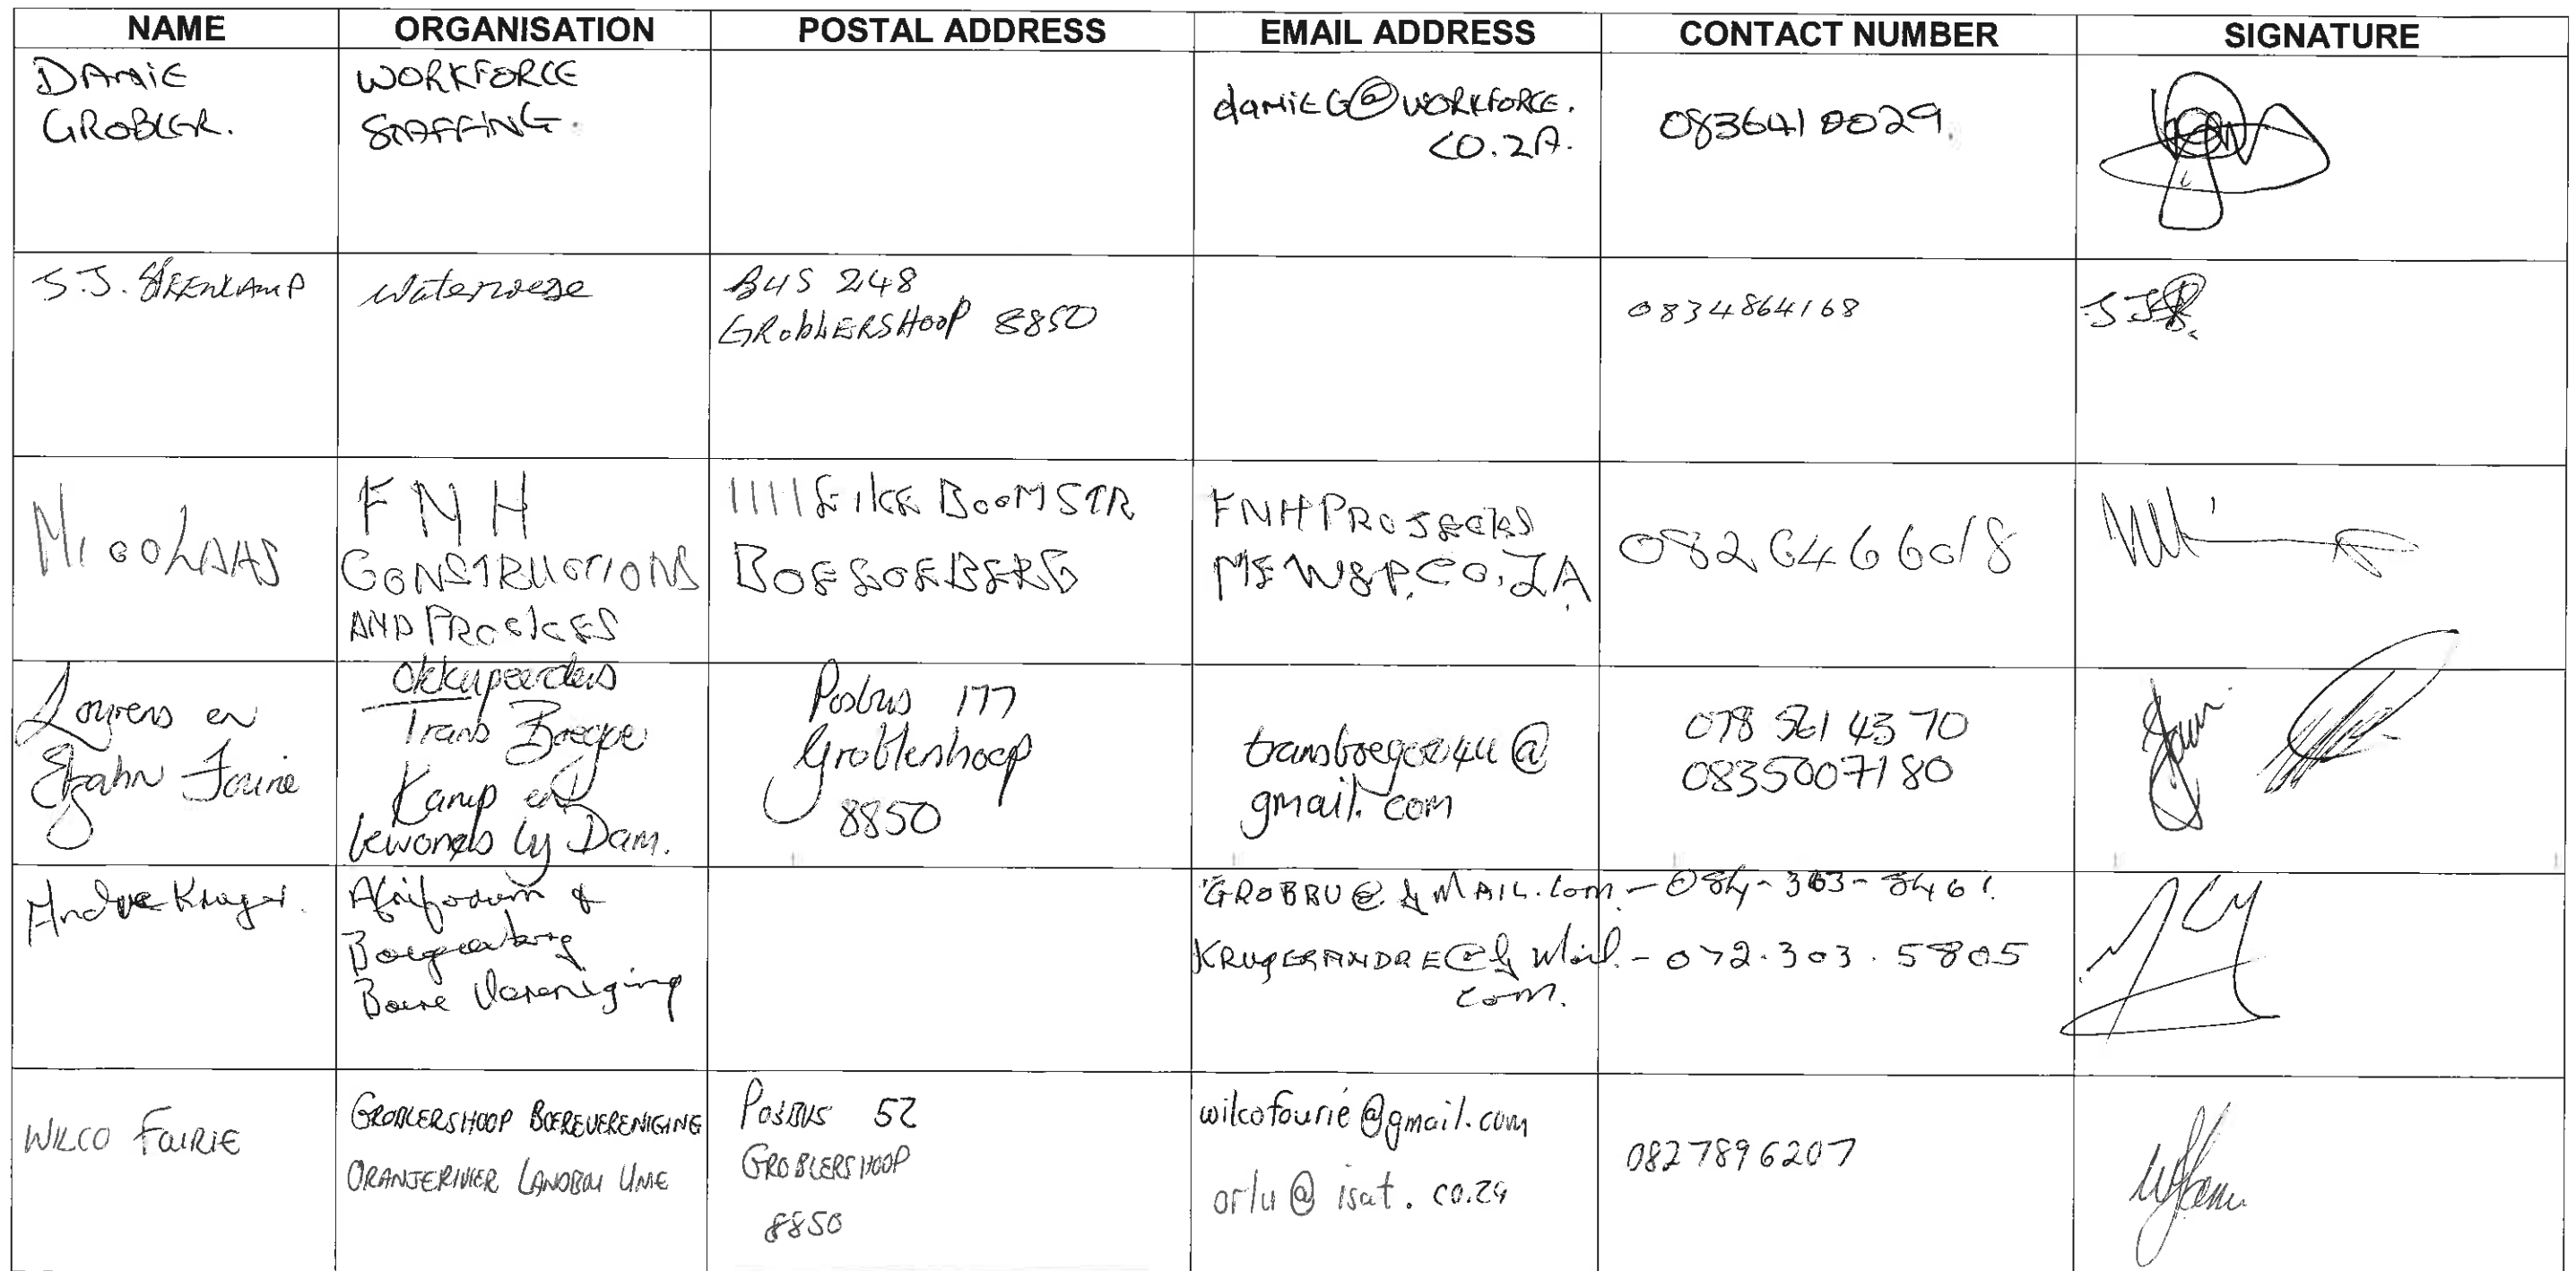 NAME ORGANISATION POSTAL ADDRESS EMAIL ADDRESS CONTACT NUMBER SIGNATURE
DANIE
GROBLER.
WORKFORCE
STAFFING.
danieG@WORKFORCE.
CO.ZA.
0836410029
S.J. STEENKAMP
Waterwese
BUS 248
GRobbLERSHOOP 8850
0834864168
FNH
CONSTRUCTIONS
AND
BOOMSTR
BOEGOEBERG
FNHPROJECTS
.CO.ZA
0826466018
Lourens en
Fourie
Okkupeerders
Trans Boegoe
Kamp en
by Dam.
Posbus 177
Groblershoop
8850
@
gmail.com
078 561 4370
0835007180
Andre Kruger.
Afriforum &
Boegoeberg
Boere Vereniging
GROBRU@gMAIL.com - 084-303-8461
KRUGERANDRE@gMail. - 072.303.5805
com.
WILCO FOURIE
GROBLERSHOOP BOEREVERENIGING
ORANJERIVIER LANDBOU UNIE
POSBUS 52
GROBLERSHOOP
8850
wilcofourie@gmail.com
orlu@isat.co.za
0827896207